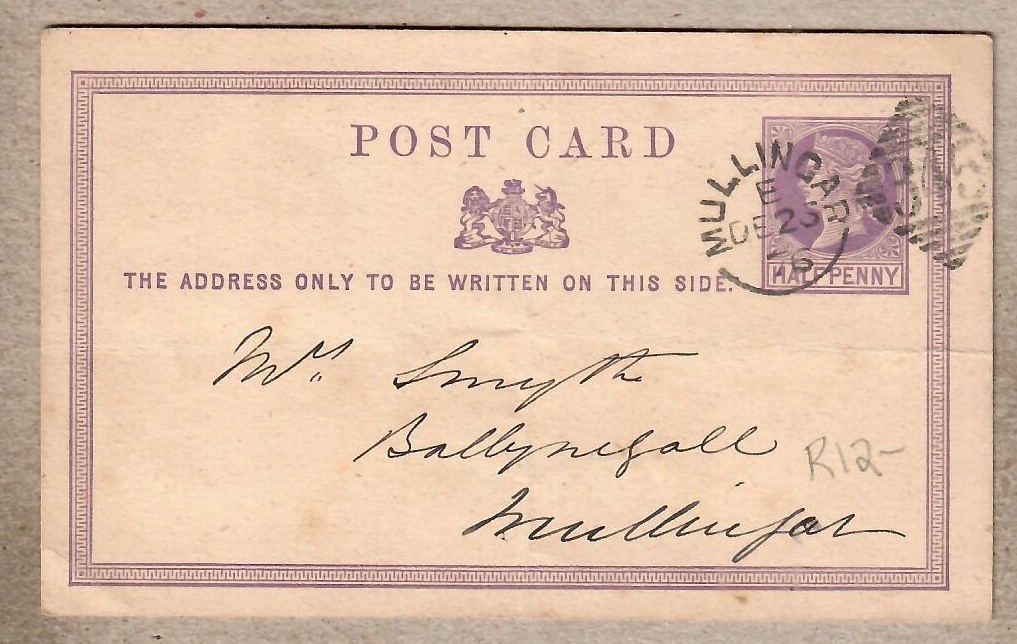 POST CARD
MULLINGAR
E
DE 23
76
THE ADDRESS ONLY TO BE WRITTEN ON THIS SIDE.
HALFPENNY
Mrs Smythe
Ballynegall
Mullingar
R12-